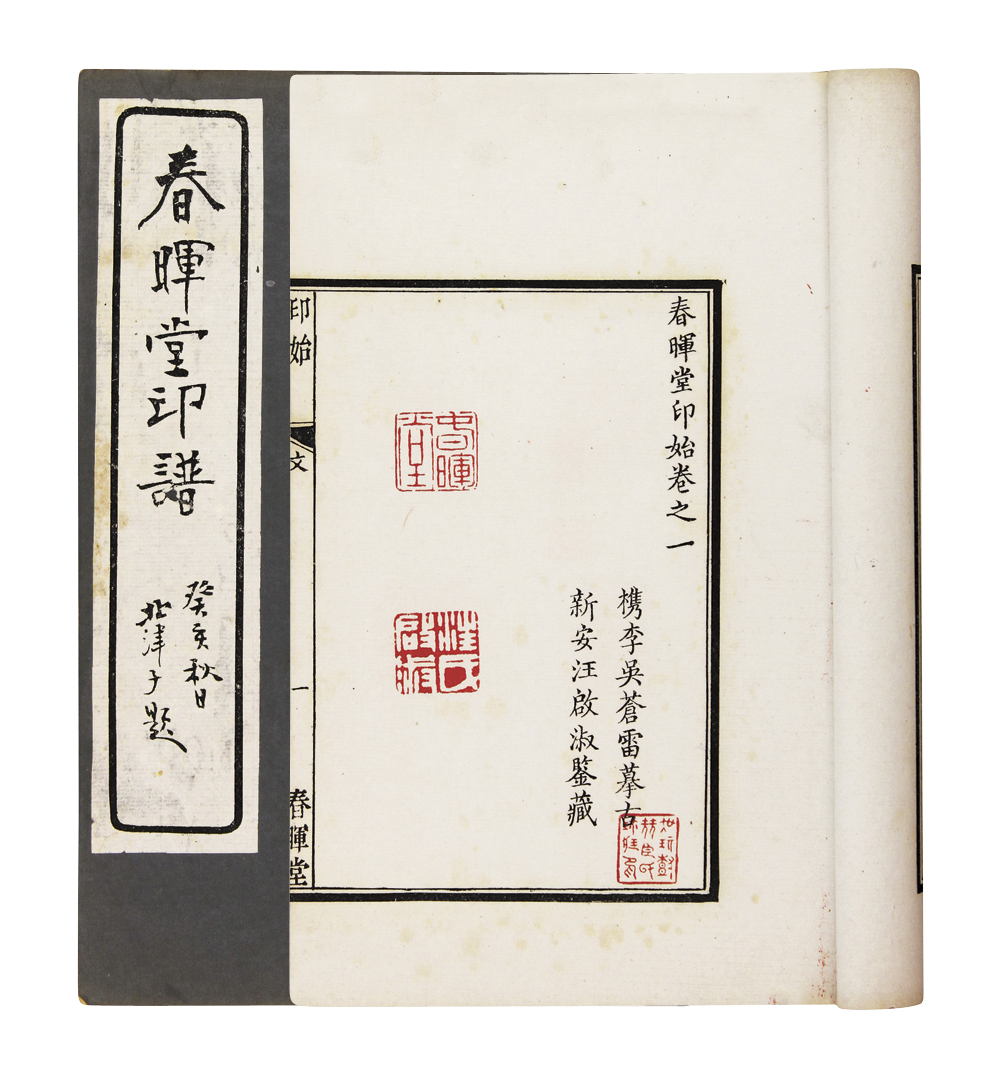 春暉堂印譜
癸亥秋日
北津子題
春暉堂印始卷之一
槜李吳蒼雷摹古
新安汪啟淑鑒藏
春暉堂
汪氏啟淑
印始
文
一
春暉堂